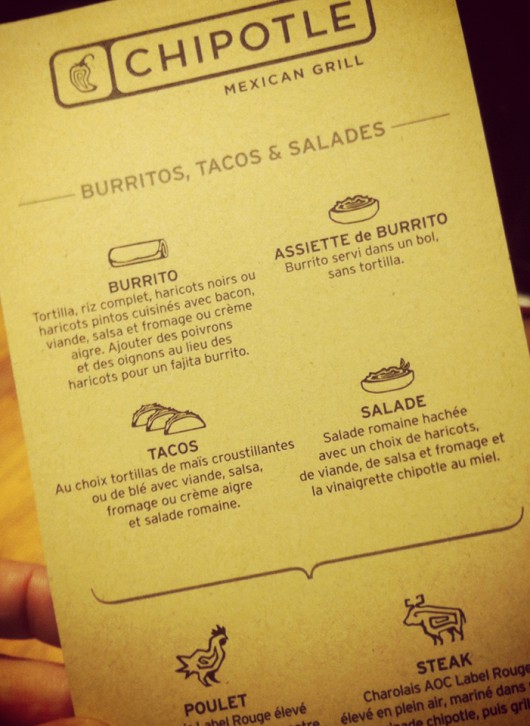 CHIPOTLE
MEXICAN GRILL
BURRITOS, TACOS & SALADES
BURRITO
Tortilla, riz complet, haricots noirs ou
haricots pintos cuisinés avec bacon,
viande, salsa et fromage ou crème
aigre. Ajouter des poivrons
et des oignons au lieu des
haricots pour un fajita burrito.
ASSIETTE de BURRITO
Burrito servi dans un bol,
sans tortilla.
TACOS
Au choix tortillas de maïs croustillantes
ou de blé avec viande, salsa,
fromage ou crème aigre
et salade romaine.
SALADE
Salade romaine hachée
avec un choix de haricots,
de viande, de salsa et fromage et
la vinaigrette chipotle au miel.
POULET
Label Rouge élevé
STEAK
Charolais AOC Label Rouge
élevé en plein air, mariné dans
chipotle, puis